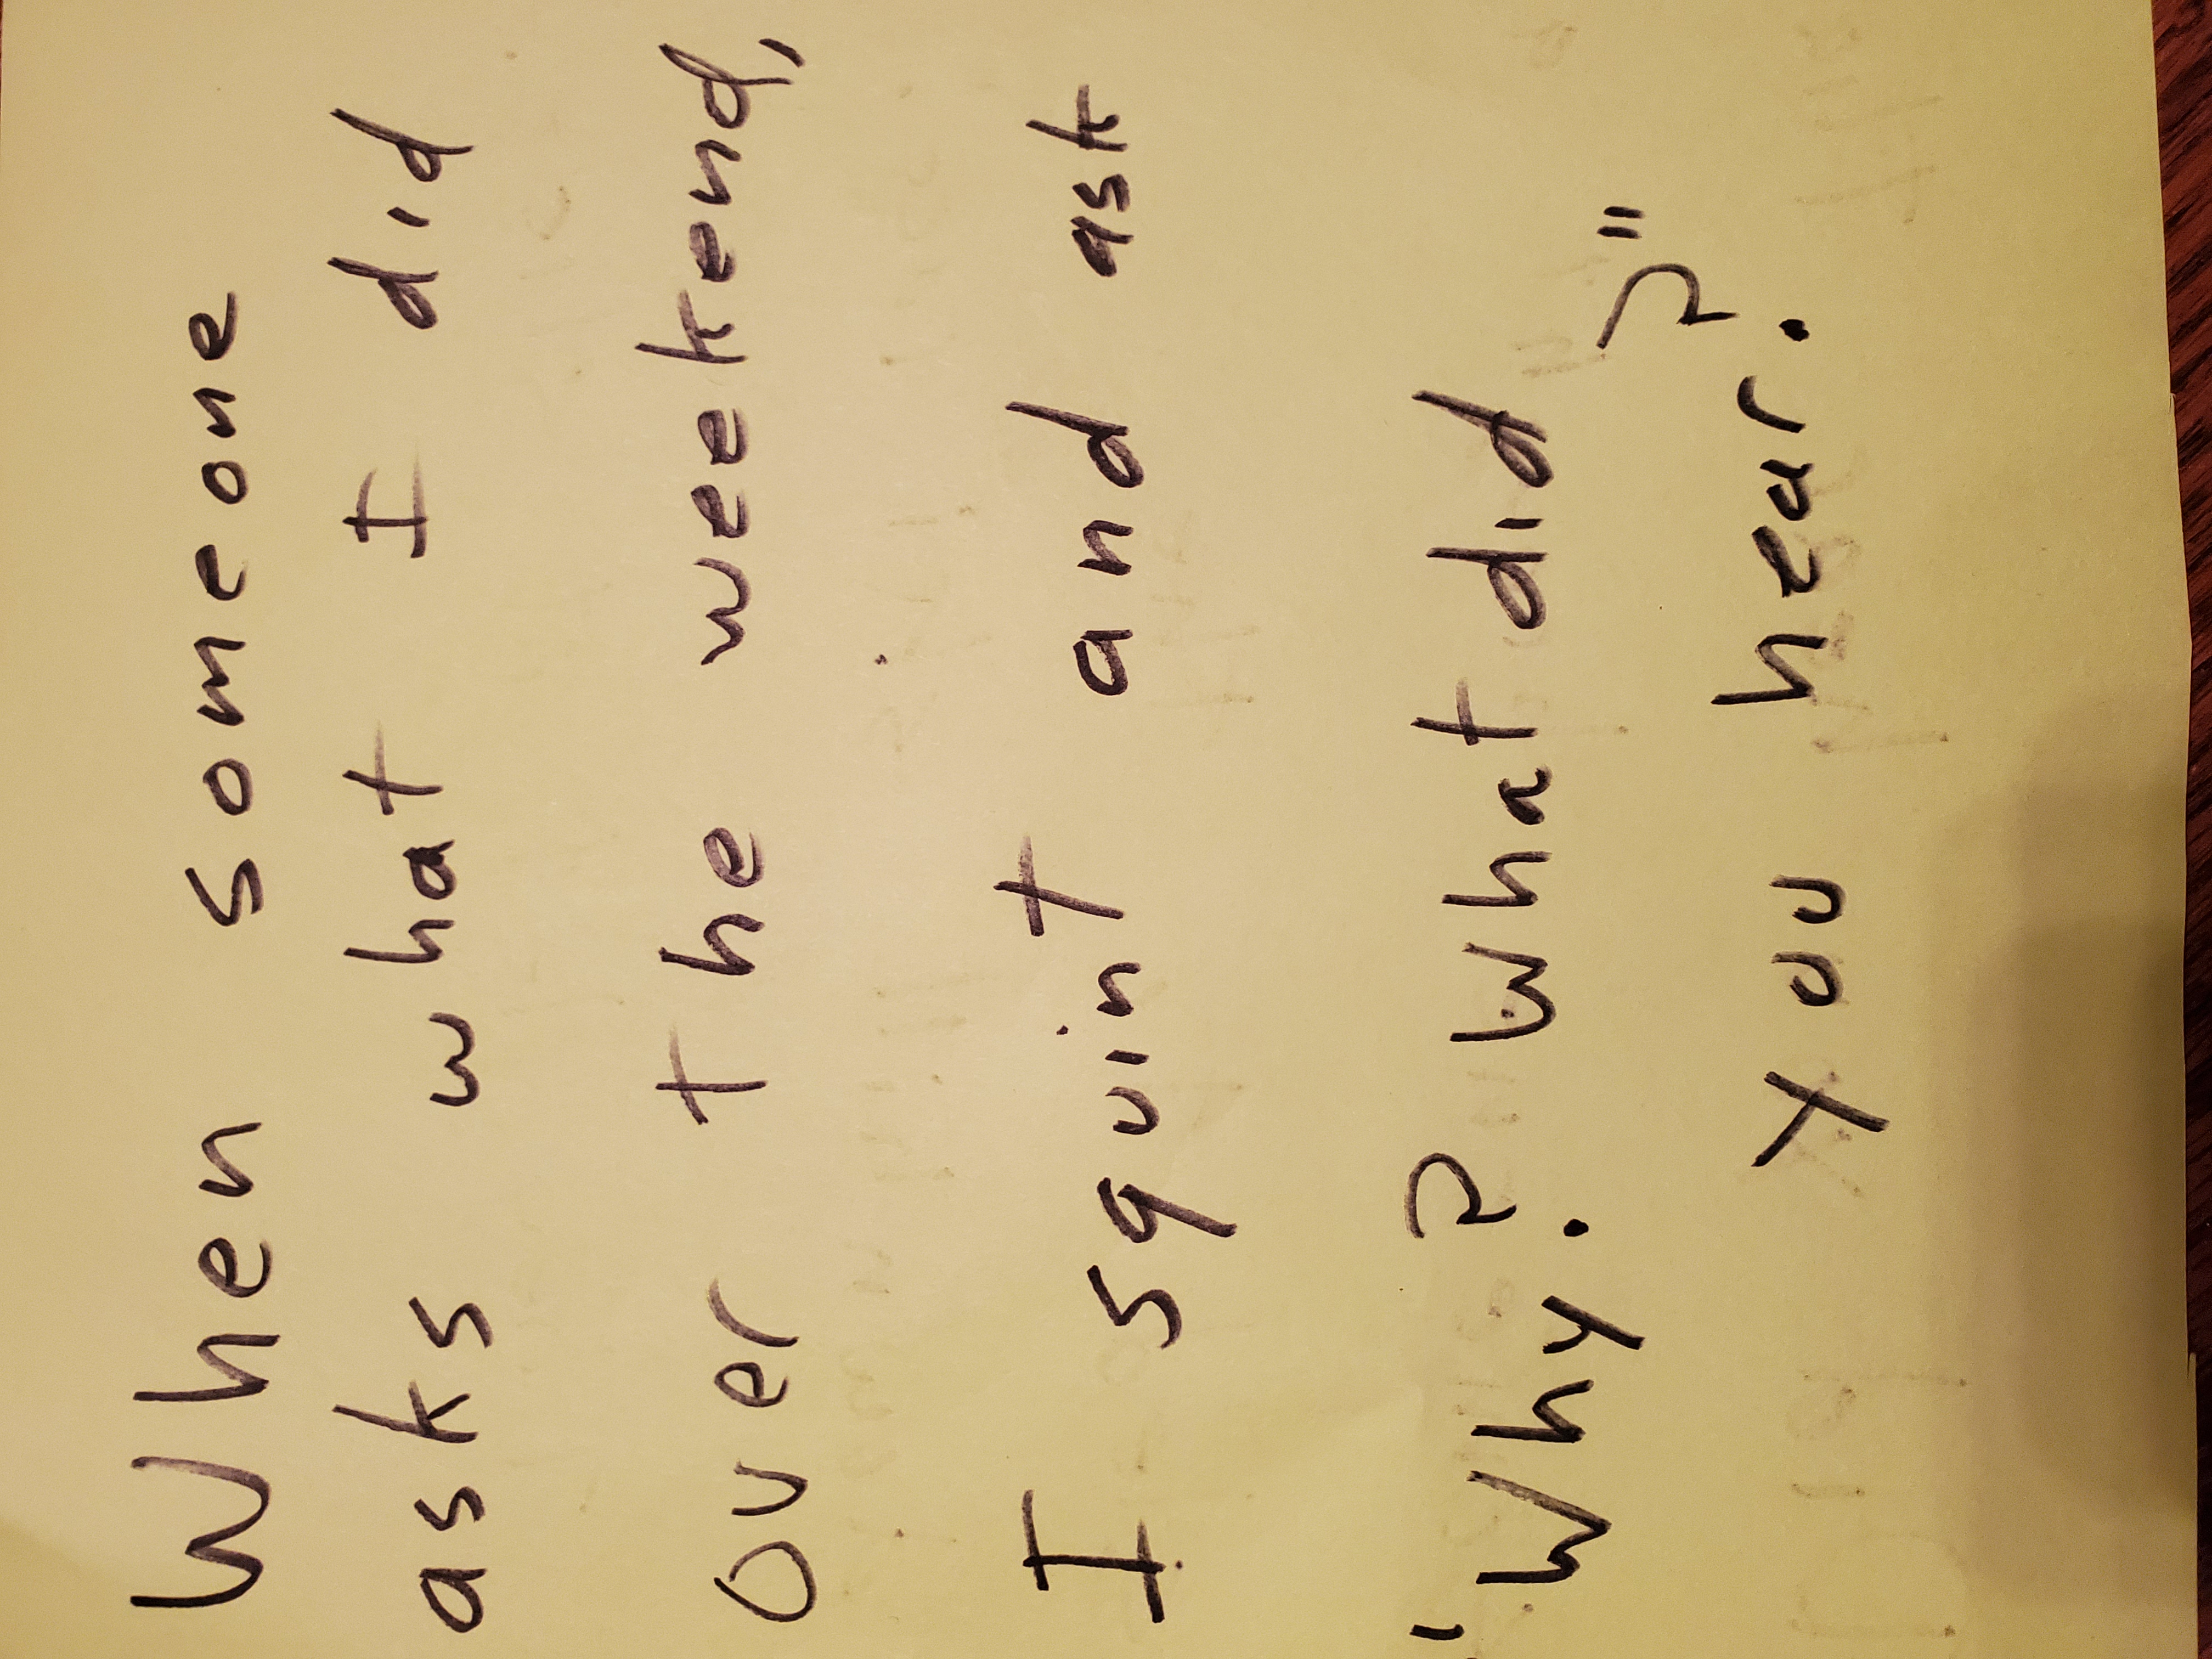 When someone
asks what I did
over the weekend,
I squint and ask
"Why? What did
you hear?"